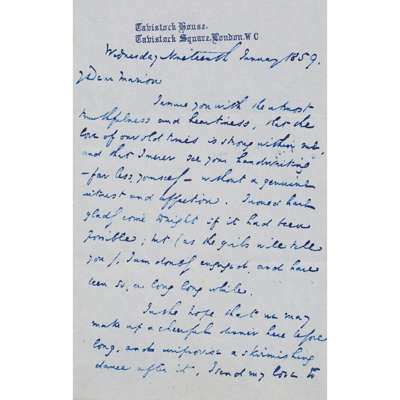 Tavistock House.
Tavistock Square, London. W C
Wednesday Nineteenth January 1859.
My Dear Marion
I assure you with the utmost
truthfulness and heartiness, that the
love of our old times is strong within me,
and that I never see your handwriting
– far less yourself – without a genuine
interest and affection. I would have
gladly come tonight if it had been
possible; but (as the girls will tell
you), I am doubly engaged, and have
been so, a long long while.
In the hope that we may
make up a cheerful dinner here before
long, and improvise a skirmishing
dance after it, I send my love to